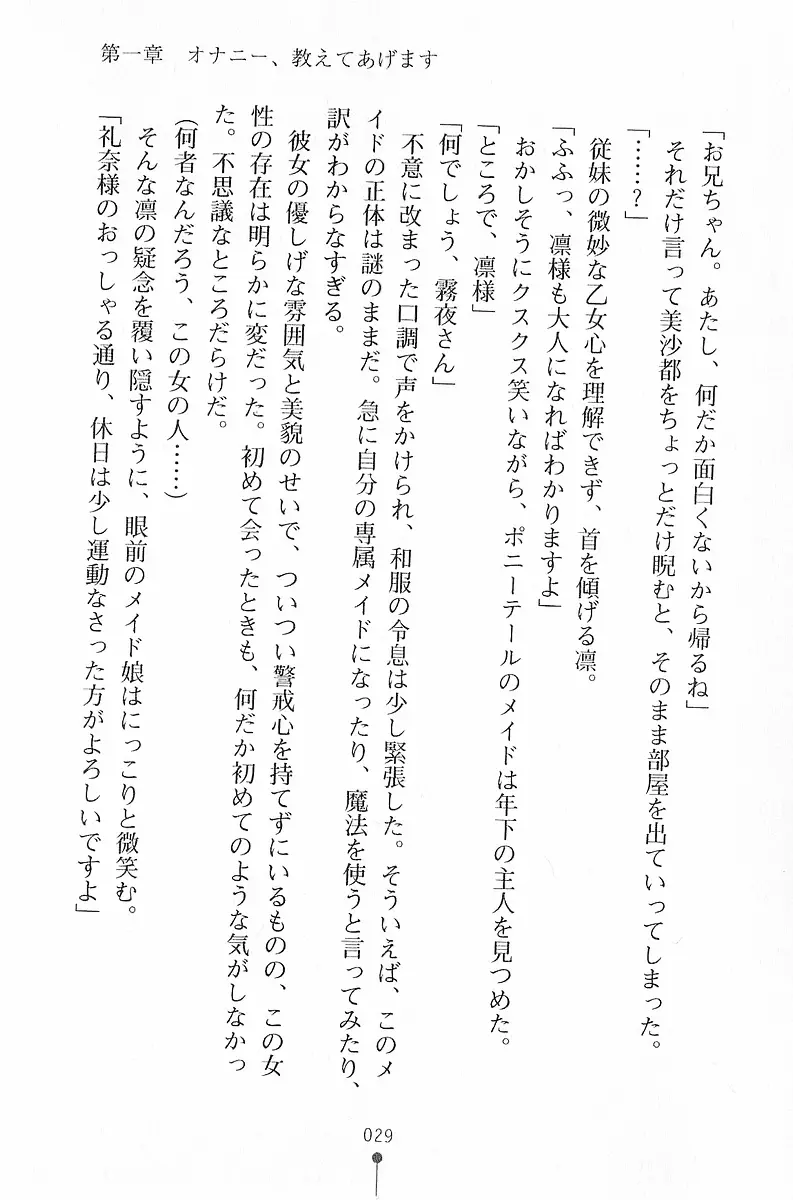 第一章　オナニー、教えてあげます
「お兄ちゃん。あたし、何だか面白くないから帰るね」
それだけ言って美沙都をちょっとだけ睨むと、そのまま部屋を出ていってしまった。
「……？」
従妹の微妙な乙女心を理解できず、首を傾げる凛。
「ふふっ、凛様も大人になればわかりますよ」
おかしそうにクスクス笑いながら、ポニーテールのメイドは年下の主人を見つめた。
「ところで、凛様」
「何でしょう、霧夜さん」
不意に改まった口調で声をかけられ、和服の令息は少し緊張した。そういえば、このメ
イドの正体は謎のままだ。急に自分の専属メイドになったり、魔法を使うと言ってみたり、
訳がわからなすぎる。
彼女の優しげな雰囲気と美貌のせいで、ついつい警戒心を持てずにいるものの、この女
性の存在は明らかに変だった。初めて会ったときも、何だか初めてのような気がしなかっ
た。不思議なところだらけだ。
（何者なんだろう、この女の人……）
そんな凛の疑念を覆い隠すように、眼前のメイド娘はにっこりと微笑む。
「礼奈様のおっしゃる通り、休日は少し運動なさった方がよろしいですよ」
029